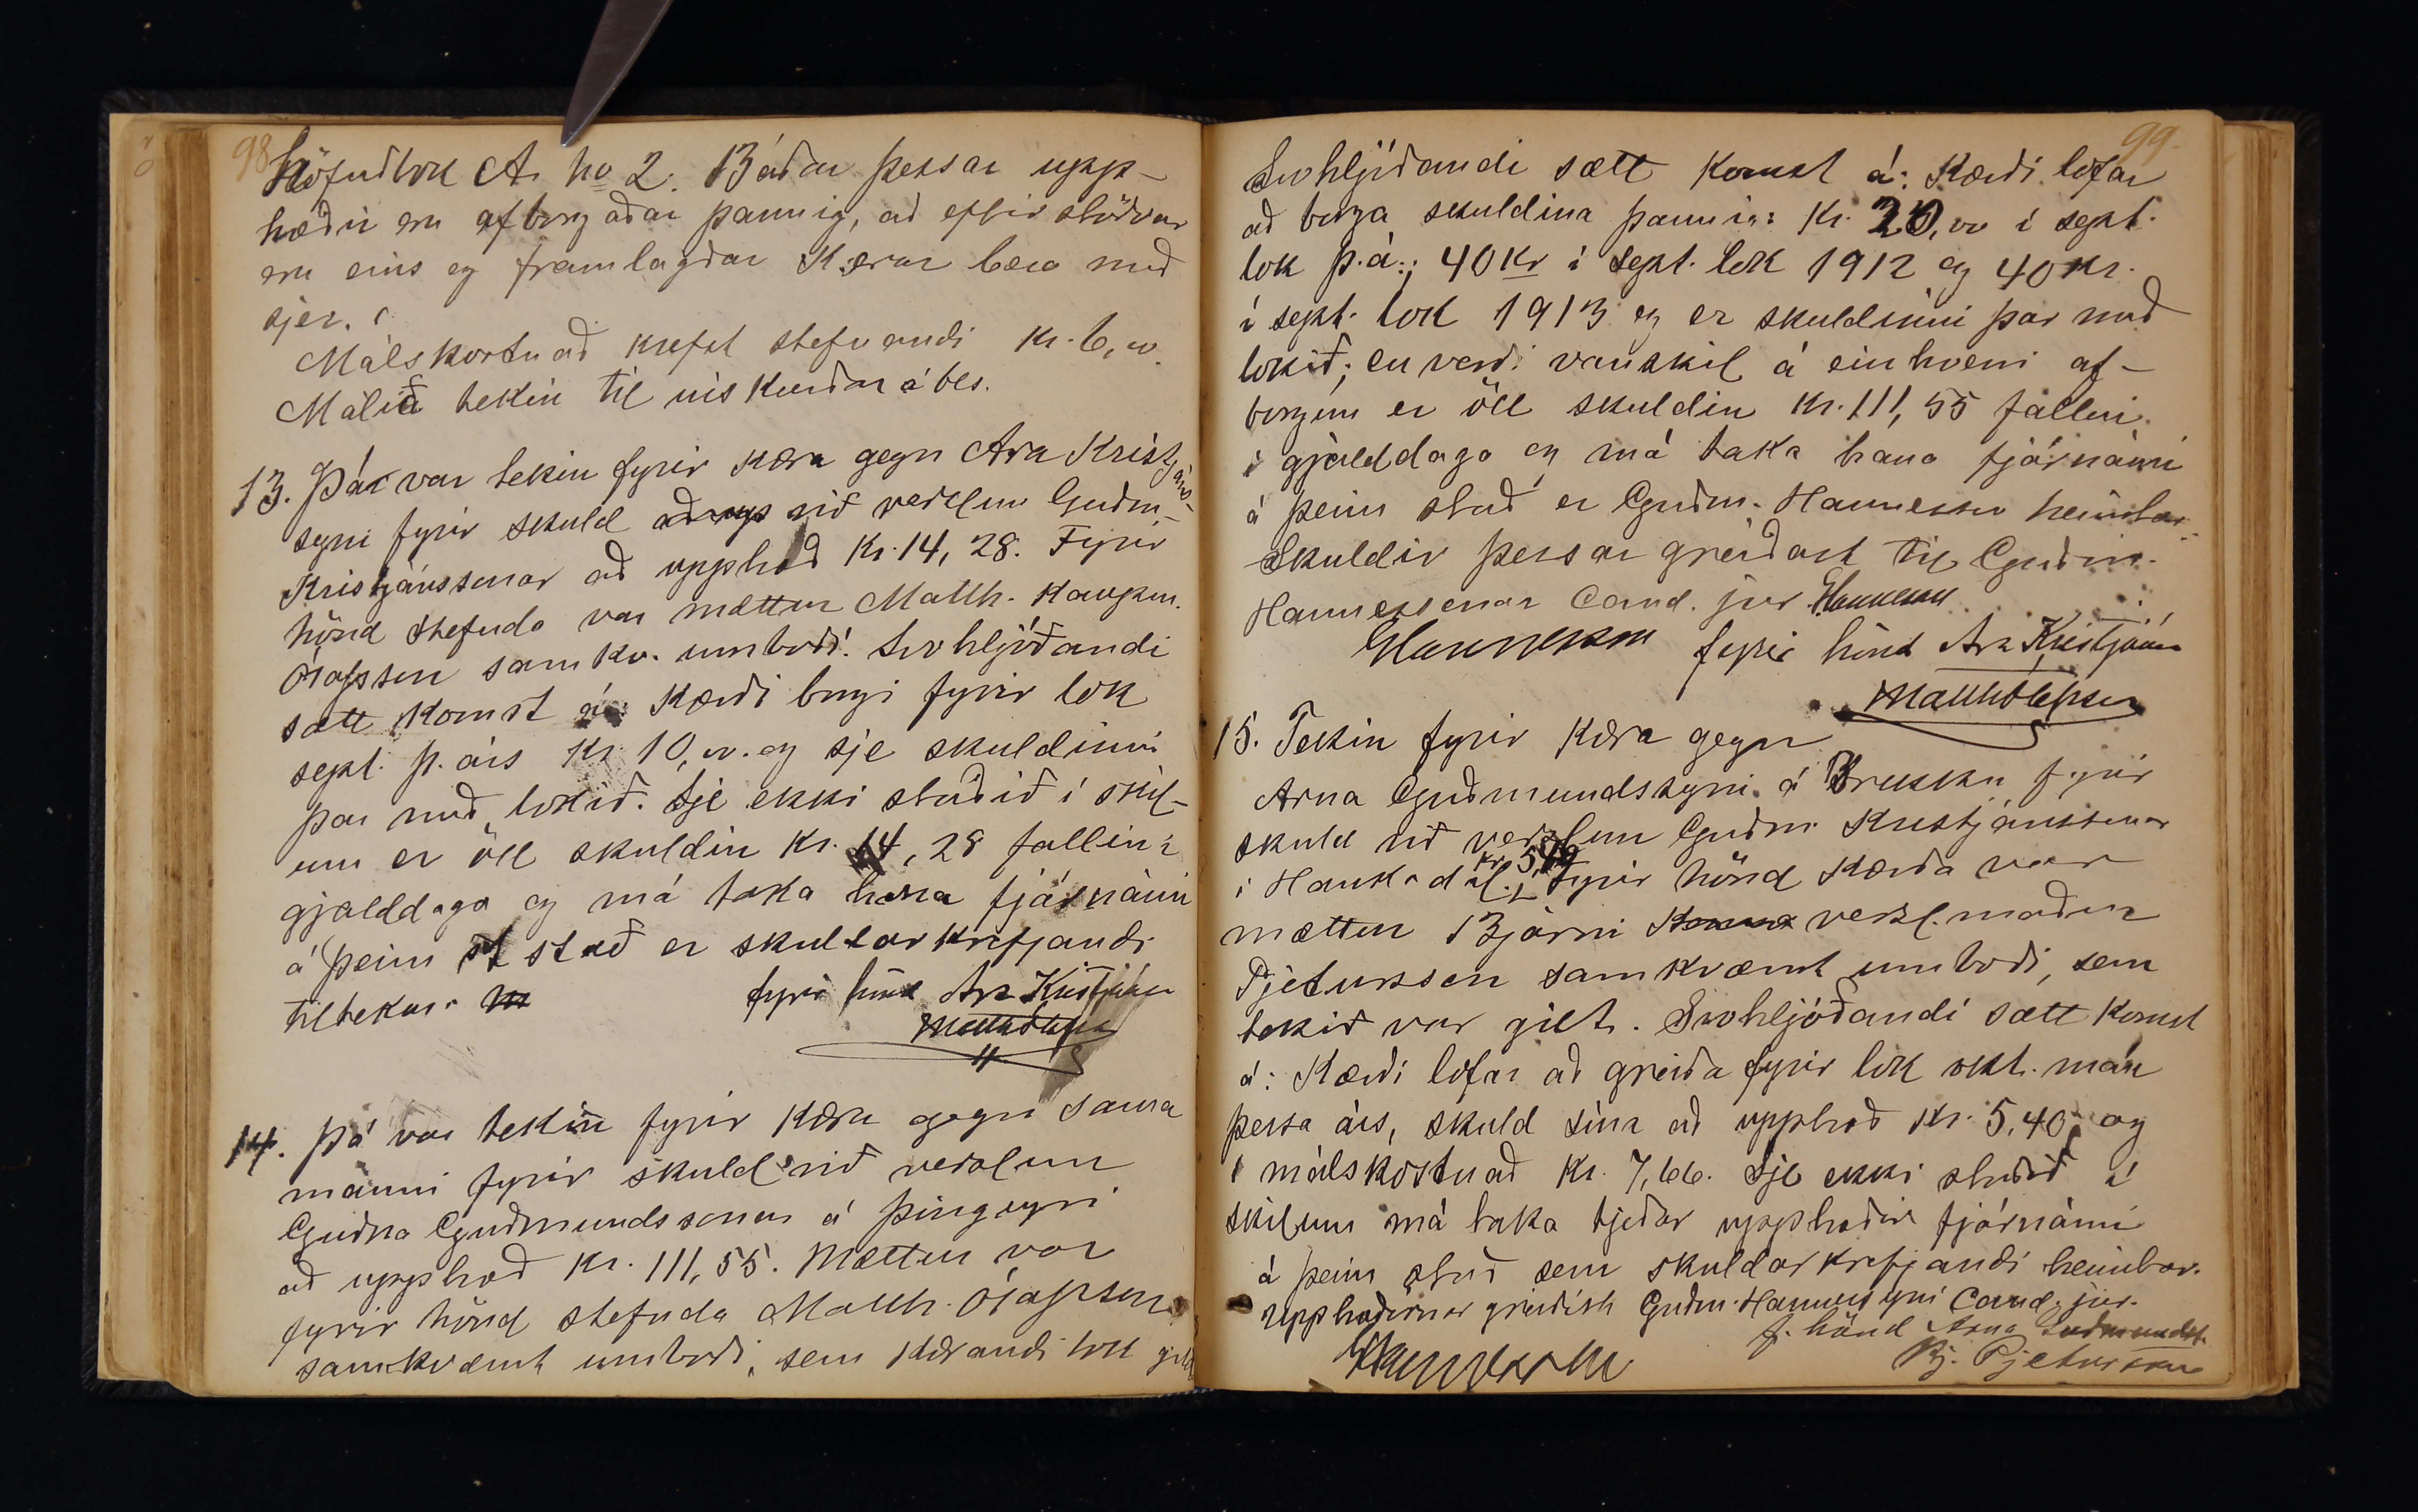 98
höfuðbók A. no 2. Báðar þessar upp-
hæðir eru afborgaðar þannig, að eftirstöðvar
eru eins og framlagðar Kærur bera með
sjer.
Málskostnað krefst stefnandi Kr. 6,00
Málið tekin til úrskurðar á bls.
13. Þá var tekin fyrir kæra gegn Ara Kristjáns-
syni fyrir skuld við verzlun Guðm.
Kristjánssonar að upphæð Kr. 14,28. Fyrir
hönd stefnda var mættur Matth. kaupm.
Ólafsson samkv. umboði. Svohljóðandi
sætt komst á: Kærði borgi fyrir lok
sept. þ. árs Kr. 10,00. og sje skuldinni
þar með lokið. Sje ekki staðið í skil-
um er öll skuldin Kr. 14,28 fallin í
gjalddaga og má taka hana fjárnámi
á þeim stað er skuldarkrefjandi
tiltekur. fyrir hönd Ara Kristjáns
Matth Ólafsson
14. Þá var tekin fyrir kæra gegn sama
manni fyrir skuld við verzlun
Guðna Guðmundssonar á Þingeyri
að upphæð Kr. 111,55. Mættur var
fyrir hönd stefnda Matth. Ólafsson
samkvæmt umboði, sem kærandi tók gilt
99.
Svohljóðandi sætt komst á: Kærði lofar
að borga skuldina þannig: Kr. 20,00 í sept.
lok þ.á.; 40 Kr í sept. lok 1912 og 40 Kr.
í sept. lok 1913 og er skuldinni þar með
lokið; en verði vanskil á einhverri af-
borgun er öll skuldin Kr. 111,55 fallin
í gjalddaga og má taka hana fjárnámi
á þeim stað er Guðm. Hannesson heimtar
Skuldir þessar greiðast til Guðm.
Hannessonar Cand. jur. Hannesson
GHannesson fyrir hönd Ara Kristjáns
Matth Ólafsson
15. Tekin fyrir kæra gegn
Arna Guðmundssyni á Brekku fyrir
skuld við verzlun Guðm Kristjánssonar
í Haukadal. Fyrir hönd Kærða var
mættur Bjarni verzl.maður
Pjetursson samkvæmt umboði, sem
tekið var gilt. Svohljóðandi sætt komst
á: Kærði lofar að greiða fyrir lok okt. mán
þessa árs, skuld sína að upphæð Kr. 5,40 og
í málskostnað Kr. 7,66. Sje ekki staðið í
skilum má taka tjeðar upphæðir fjárnámi
á þeim stað sem skuldarkrefjandi heimtar.
Upphæðirnar greiðist Guðm. Hannessyni Cand. jur.
f. hönd Arna Guðmundss.
GHannesson Bj. Pjetursson